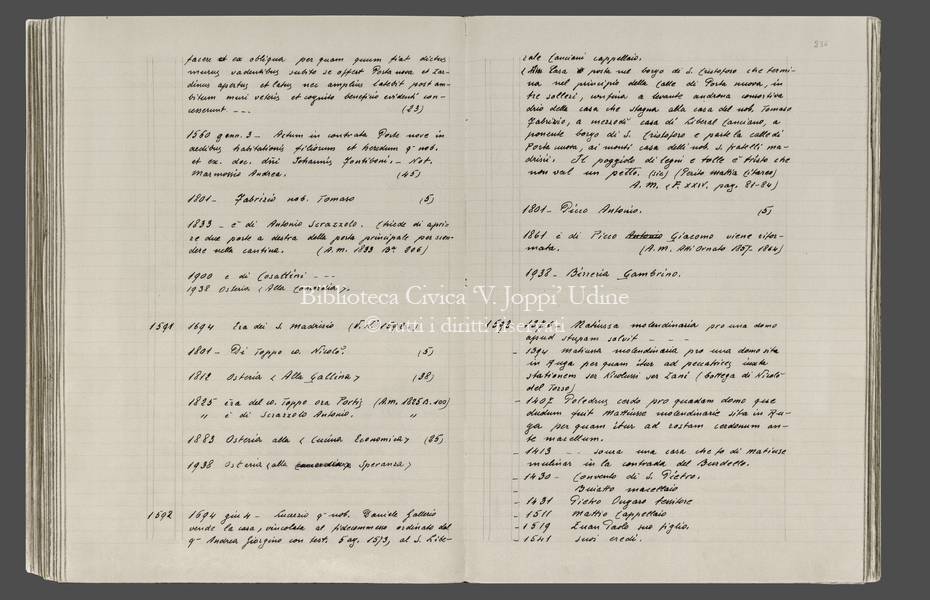 facere et ex obliquo per quam quum fiat dictus
murus vadentibus subito se offert Porta nova et Lar-
dinus apertus et letus nec amplius latebit post am-
bitum muri veteris et cognito beneficio evidenti con-
cesserunt - - - (23)
1560 genn. 3 - Actum in contrata Porte nove in
aedibus habitationis filiorum et heredum q. nob.
et ex. doc. dñi Johannis Fontiboni. - Not.
Marmossio Andrea. (45)
1801 - Fabrizio nob. Tomaso (5)
1833 - è di Antonio Scrazzolo. Chiede di apri-
re due porte a destra della porta principale per scen-
dere nella cantina. (A.M. 1833 Bª 206)
1900 è di Cosattini - - -
1938 Osteria "Alla Concordia".
1591 1694 Era dei S. Madrisio
1801 - Di Toppo co. Nicolò. (5)
1812 Osteria "Alla Gallina" (28)
1825 era del co. Toppo ora Portis (A.M. 1825 B. 100)
" è di Scrazzolo Antonio. "
1883 Osteria alla "Cucina Economica" (25)
1938 Osteria "alla Concordia Speranza"
1592 1694 giu 4 - Lucrezio q. nob. Daniele Gallerio
vende la casa, vincolata al fidecommesso ordinato del
q. Andrea Giorgino con test. 5 ag. 1573, al S. Libe-
236
rale Canciani cappellaio.
Casa e porta nel borgo di S. Cristoforo che termi-
na nel principio della Calle di Porta nuova, in
tre solleri, confina a levante androna consortiva
drio della casa che stagna alla casa del nob. Tomaso
Fabrizio, a mezzodì casa di Liberal Canciano, a
ponente borgo di S. Cristoforo e parte la calle di
Porta nuova, ai monti casa delli nob. S. fratelli Ma-
drisii. Il poggiolo di legni e tolle è tristo che
non val un petto. (sic) (Perito Mattia Litareo)
A.M. (F. XXIV. pag. 81-84)
1801 - Picco Antonio. (5)
1861 è di Picco Antonio Giacomo viene rifor-
mata. (A.M. Atti Ornato 1857-1864)
1938 - Birreria Gambrino.
1593 Matiussa molendinaria pro una domo
apud stupam solvit - - -
- 1394 Matiussa molendinaria pro una domo sita
in Ruga per quam itur ad peccatrices iuxta
stationem ser Nicolussi ser Zani (bottega di Nicolò
del Torso)
- 1407 Poledrus cerdo pro quadam domo que
dudum fuit Mattiusse molendinarie sita in Ru-
ga per quam itur ad rostam cerdonum an-
te macellum.
- 1413 - - soura una casa che fo di Matiuse
mulinar in la contrada del Burdello.
- 1430 - Convento di S. Pietro.
Buiatto macellaio
- 1431 Pietro Ongaro tessitore
- 1511 Mattio Cappellaio
- 1519 Zuan Paolo suo figlio.
- 1541 suoi eredi.
Biblioteca Civica 'V. Joppi' Udine
© tutti i diritti riservati